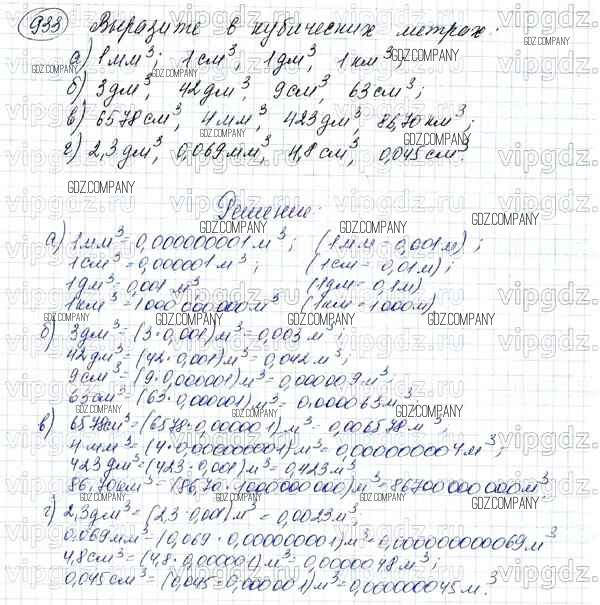 933 Выразите в кубических метрах:
а) 1 мм³; 1 см³, 1 дм³, 1 км³;
б) 3 дм³, 42 дм³, 9 см³, 63 см³;
в) 6578 см³, 4 мм³, 423 дм³, 86,70 км³;
г) 2,3 дм³, 0,069 мм³, 4,8 см³, 0,045 см³.
Решение:
а) 1 мм³ = 0,000000001 м³; (1 мм = 0,001 м);
1 см³ = 0,000001 м³; (1 см = 0,01 м);
1 дм³ = 0,001 м³ (1 дм = 0,1 м)
1 км³ = 1000 000 000 м³ (1 км = 1000 м)
б) 3 дм³ = (3·0,001) м³ = 0,003 м³;
42 дм³ = (42·0,001) м³ = 0,042 м³;
9 см³ = (9·0,000001) м³ = 0,000009 м³;
63 см³ = (63·0,000001) м³ = 0,000063 м³;
в) 6578 см³ = (6578·0,000001) м³ = 0,006578 м³;
4 мм³ = (4·0,000000001) м³ = 0,000000004 м³;
423 дм³ = (423·0,001) м³ = 0,423 м³
86,70 км³ = (86,70·1000000000) м³ = 86700 000 000 м³.
г) 2,3 дм³ = (2,3·0,001) м³ = 0,0023 м³;
0,069 мм³ = (0,069·0,000000001) м³ = 0,000000000069 м³
4,8 см³ = (4,8·0,000001) м³ = 0,0000048 м³;
0,045 см³ = (0,045·0,000001) м³ = 0,000000045 м³.
GDZ.COMPANY
vipgdz.ru